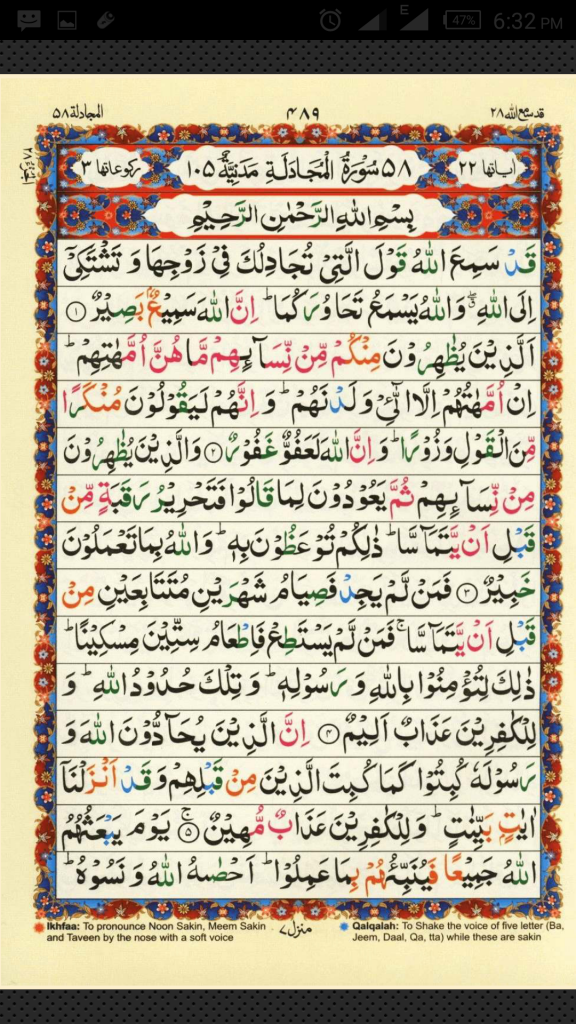 E
47%
6:32 PM
قد سمع الله ٢٨
٤٨٩
المجادلة ٥٨
اٰیاتها ٢٢
٥٨ سُوْرَةُ الْمُجَادَلَةِ مَدَنِيَّةٌ ١٠٥
رکوعاتها ٣
بِسْمِ اللّٰهِ الرَّحْمٰنِ الرَّحِيْمِ
قَدْ سَمِعَ اللّٰهُ قَوْلَ الَّتِيْ تُجَادِلُكَ فِيْ زَوْجِهَا وَ تَشْتَكِيْۤ
اِلَى اللّٰهِ ۖۗ وَ اللّٰهُ يَسْمَعُ تَحَاوُرَكُمَا ؕ اِنَّ اللّٰهَ سَمِيْعٌۢ بَصِيْرٌ ۝١
اَلَّذِيْنَ يُظٰهِرُوْنَ مِنْكُمْ مِّنْ نِّسَآىِٕهِمْ مَّا هُنَّ اُمَّهٰتِهِمْ ؕ
اِنْ اُمَّهٰتُهُمْ اِلَّا الّٰٓـِٔيْ وَلَدْنَهُمْ ؕ وَ اِنَّهُمْ لَيَقُوْلُوْنَ مُنْكَرًا
مِّنَ الْقَوْلِ وَ زُوْرًا ؕ وَ اِنَّ اللّٰهَ لَعَفُوٌّ غَفُوْرٌ ۝٢ وَ الَّذِيْنَ يُظٰهِرُوْنَ
مِنْ نِّسَآىِٕهِمْ ثُمَّ يَعُوْدُوْنَ لِمَا قَالُوْا فَتَحْرِيْرُ رَقَبَةٍ مِّنْ
قَبْلِ اَنْ يَّتَمَآسَّا ؕ ذٰلِكُمْ تُوْعَظُوْنَ بِهٖ ؕ وَ اللّٰهُ بِمَا تَعْمَلُوْنَ
خَبِيْرٌ ۝٣ فَمَنْ لَّمْ يَجِدْ فَصِيَامُ شَهْرَيْنِ مُتَتَابِعَيْنِ مِنْ
قَبْلِ اَنْ يَّتَمَآسَّا ۚ فَمَنْ لَّمْ يَسْتَطِعْ فَاِطْعَامُ سِتِّيْنَ مِسْكِيْنًا ؕ
ذٰلِكَ لِتُؤْمِنُوْا بِاللّٰهِ وَ رَسُوْلِهٖ ؕ وَ تِلْكَ حُدُوْدُ اللّٰهِ ؕ وَ
لِلْكٰفِرِيْنَ عَذَابٌ اَلِيْمٌ ۝٤ اِنَّ الَّذِيْنَ يُحَآدُّوْنَ اللّٰهَ وَ
رَسُوْلَهٗ كُبِتُوْا كَمَا كُبِتَ الَّذِيْنَ مِنْ قَبْلِهِمْ وَ قَدْ اَنْزَلْنَاۤ
اٰيٰتٍۭ بَيِّنٰتٍ ؕ وَ لِلْكٰفِرِيْنَ عَذَابٌ مُّهِيْنٌ ۝٥ۚ يَوْمَ يَبْعَثُهُمُ
اللّٰهُ جَمِيْعًا فَيُنَبِّئُهُمْ بِمَا عَمِلُوْا ؕ اَحْصٰىهُ اللّٰهُ وَ نَسُوْهُ ؕ
منزل ٧
Ikhfaa: To pronounce Noon Sakin, Meem Sakin
and Taveen by the nose with a soft voice
Qalqalah: To Shake the voice of five letter (Ba,
Jeem, Daal, Qa, tta) while these are sakin